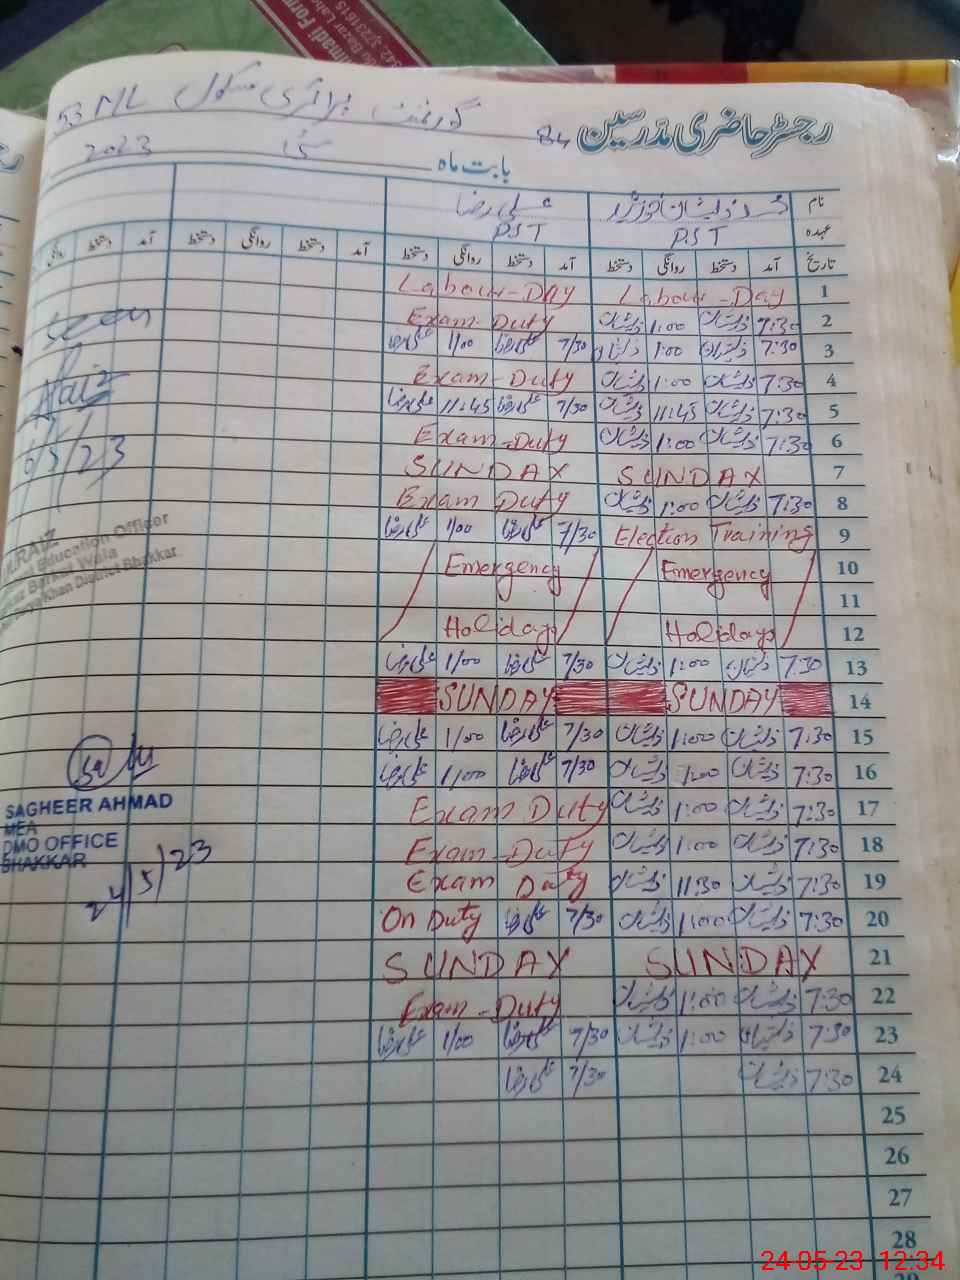 رجسٹر حاضری مدرسین
گورنمنٹ پرائمری سکول 53 ML
84
بابت ماہ مئی 2023
نام علی رضا
عہدہ PST PST
تاریخ آمد دستخط روانگی دستخط آمد دستخط روانگی دستخط آمد دستخط روانگی دستخط آمد دستخط
1 Labour-Day Labour-Day
2 7:30 ذیشان 1:00 ذیشان Exam-Duty
3 7:30 ذیشان 1:00 ذیشان 7/30 علی رضا 1/00 علی رضا
4 7:30 ذیشان 1:00 ذیشان Exam-Duty
5 7:30 ذیشان 11:45 ذیشان 7/30 علی رضا 11:45 علی رضا
6 7:30 ذیشان 1:00 ذیشان Exam-Duty
7 SUNDAY SUNDAY
8 7:30 ذیشان 1:00 ذیشان Exam Duty
9 Election Training 7/30 علی رضا 1/00 علی رضا
10 Emergency Emergency
11
12 Holidays Holidays
13 7:30 ذیشان 1:00 ذیشان 7/30 علی رضا 1/00 علی رضا
14 SUNDAY SUNDAY
15 7:30 ذیشان 1:00 ذیشان 7/30 علی رضا 1/00 علی رضا
16 7:30 ذیشان 1:00 ذیشان 7/30 علی رضا 1/00 علی رضا
17 7:30 ذیشان 1:00 ذیشان Exam Duty
18 7:30 ذیشان 1:00 ذیشان Exam-Duty
19 7:30 ذیشان 11:30 ذیشان Exam Duty
20 7:30 ذیشان 1:00 ذیشان 7/30 علی رضا On Duty
21 SUNDAY SUNDAY
22 7:30 ذیشان 1:00 ذیشان Exam-Duty
23 7:30 ذیشان 1:00 ذیشان 7/30 علی رضا 1/00 علی رضا
24 7:30 ذیشان 7/30 علی رضا
25
26
27
28
Seen
Education Officer
Barkat Wala
Khan District Bhakkar
SAGHEER AHMAD
MEA
DMO OFFICE
BHAKKAR
24/5/23
24-05-23 12:34